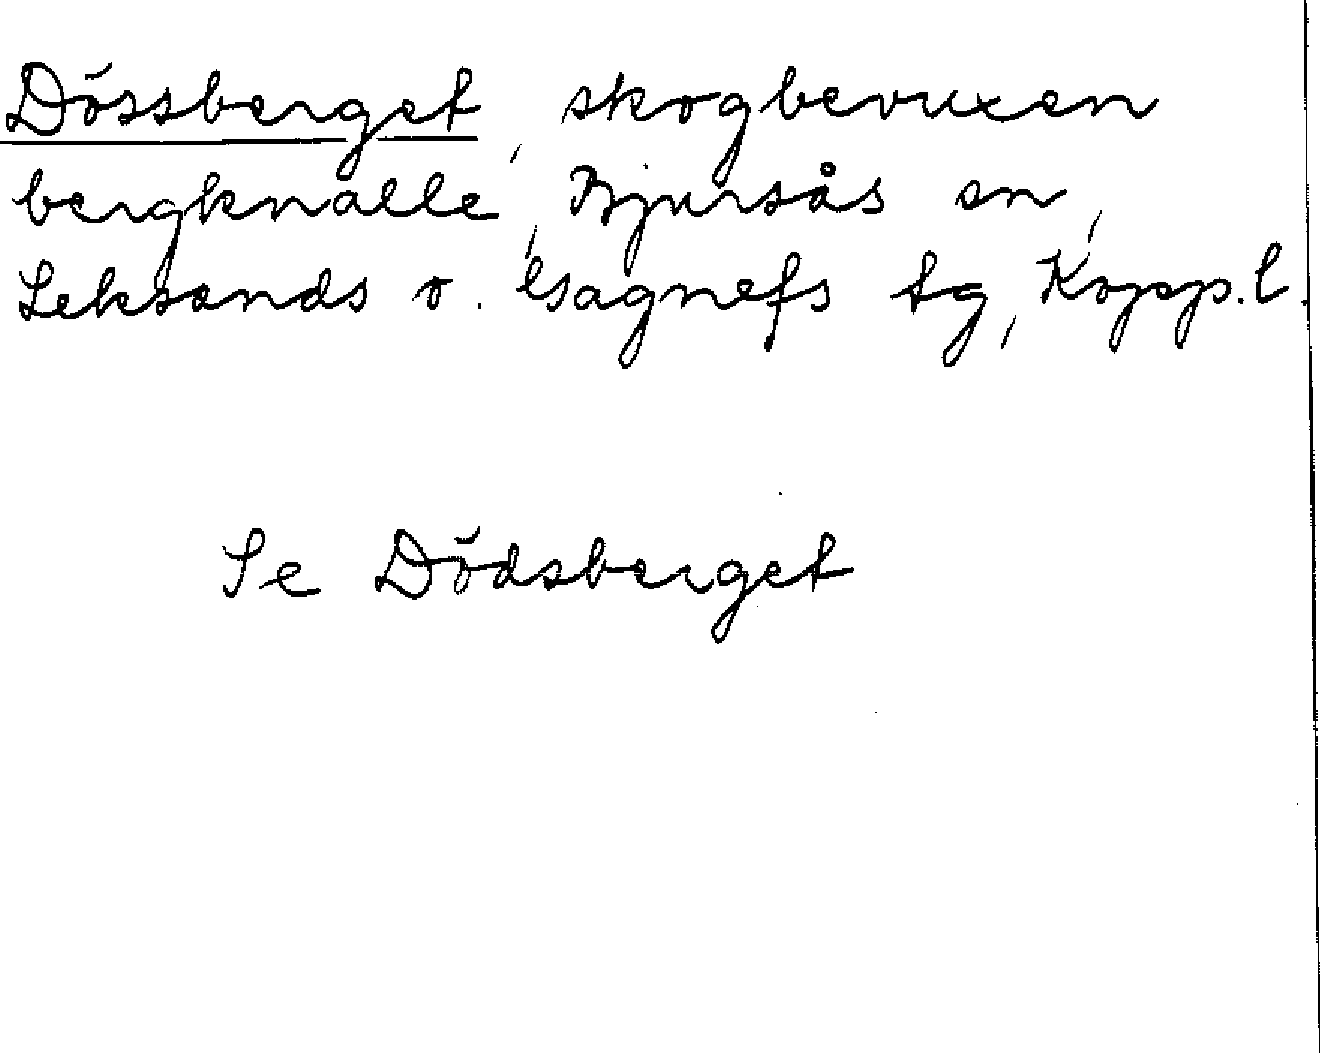 Dössberget, skogbevuxen
bergknalle, Bjursås sn,
Leksands o. Gagnefs tg, Kopp.l.
Se Dödsberget